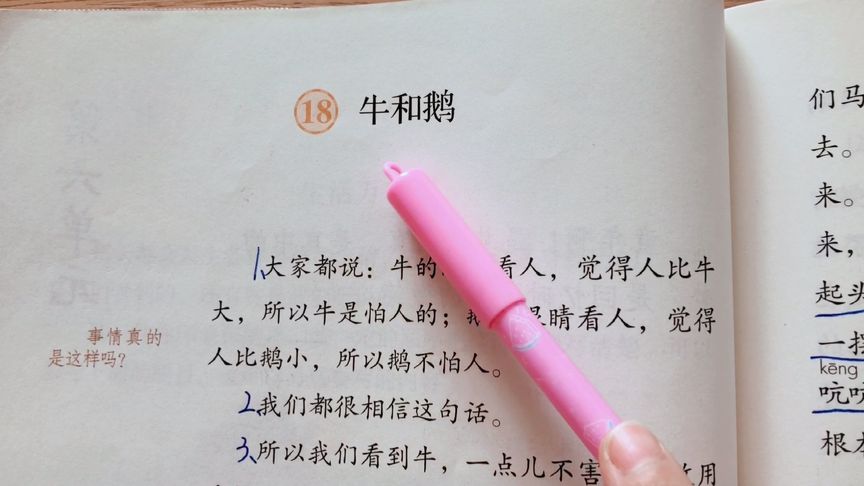 18 牛和鹅
1、大家都说：牛的 看人，觉得人比牛
大，所以牛是怕人的； 眼睛看人，觉得
人比鹅小，所以鹅不怕人。
事情真的
是这样吗？
2、我们都很相信这句话。
3、所以我们看到牛，一点儿不害 用
们马
去。
来。
来，
起头
一
kēng
吭
根本